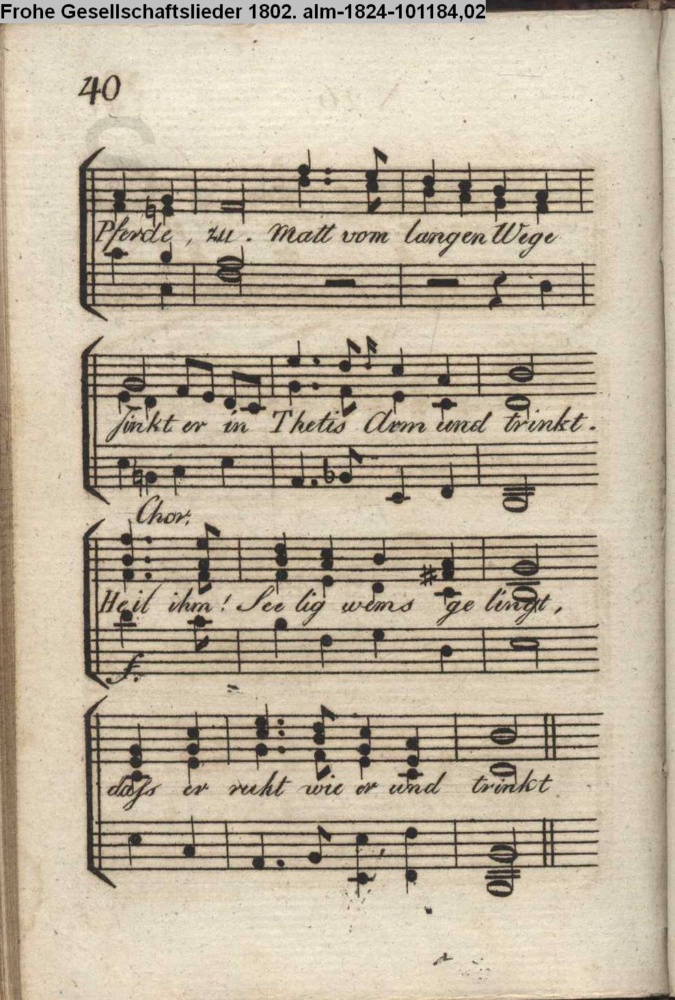 Frohe Gesellschaftslieder 1802. alm-1824-101184,02
40
Pferde, zu. Matt vom langen Wege
sinkt er in Thetis Arm und trinkt.
Chor.
Heil ihm! See lig wems ge lingt,
f.
daſs er ruht wie er und trinkt